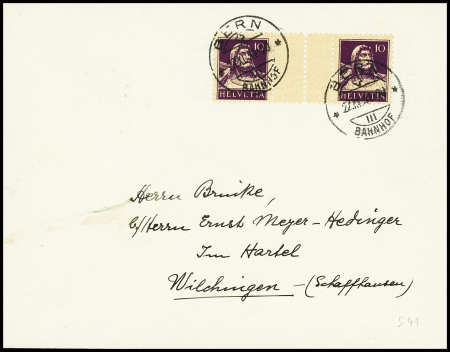 10 10
HELVETIA HELVETIA
BERN
BAHNHOF
III
BAHNHOF
Herrn Brinke,
b/Herrn Ernst Meyer-Hedinger
Im Hartel
Wilchingen -(Schaffhausen)
S 41